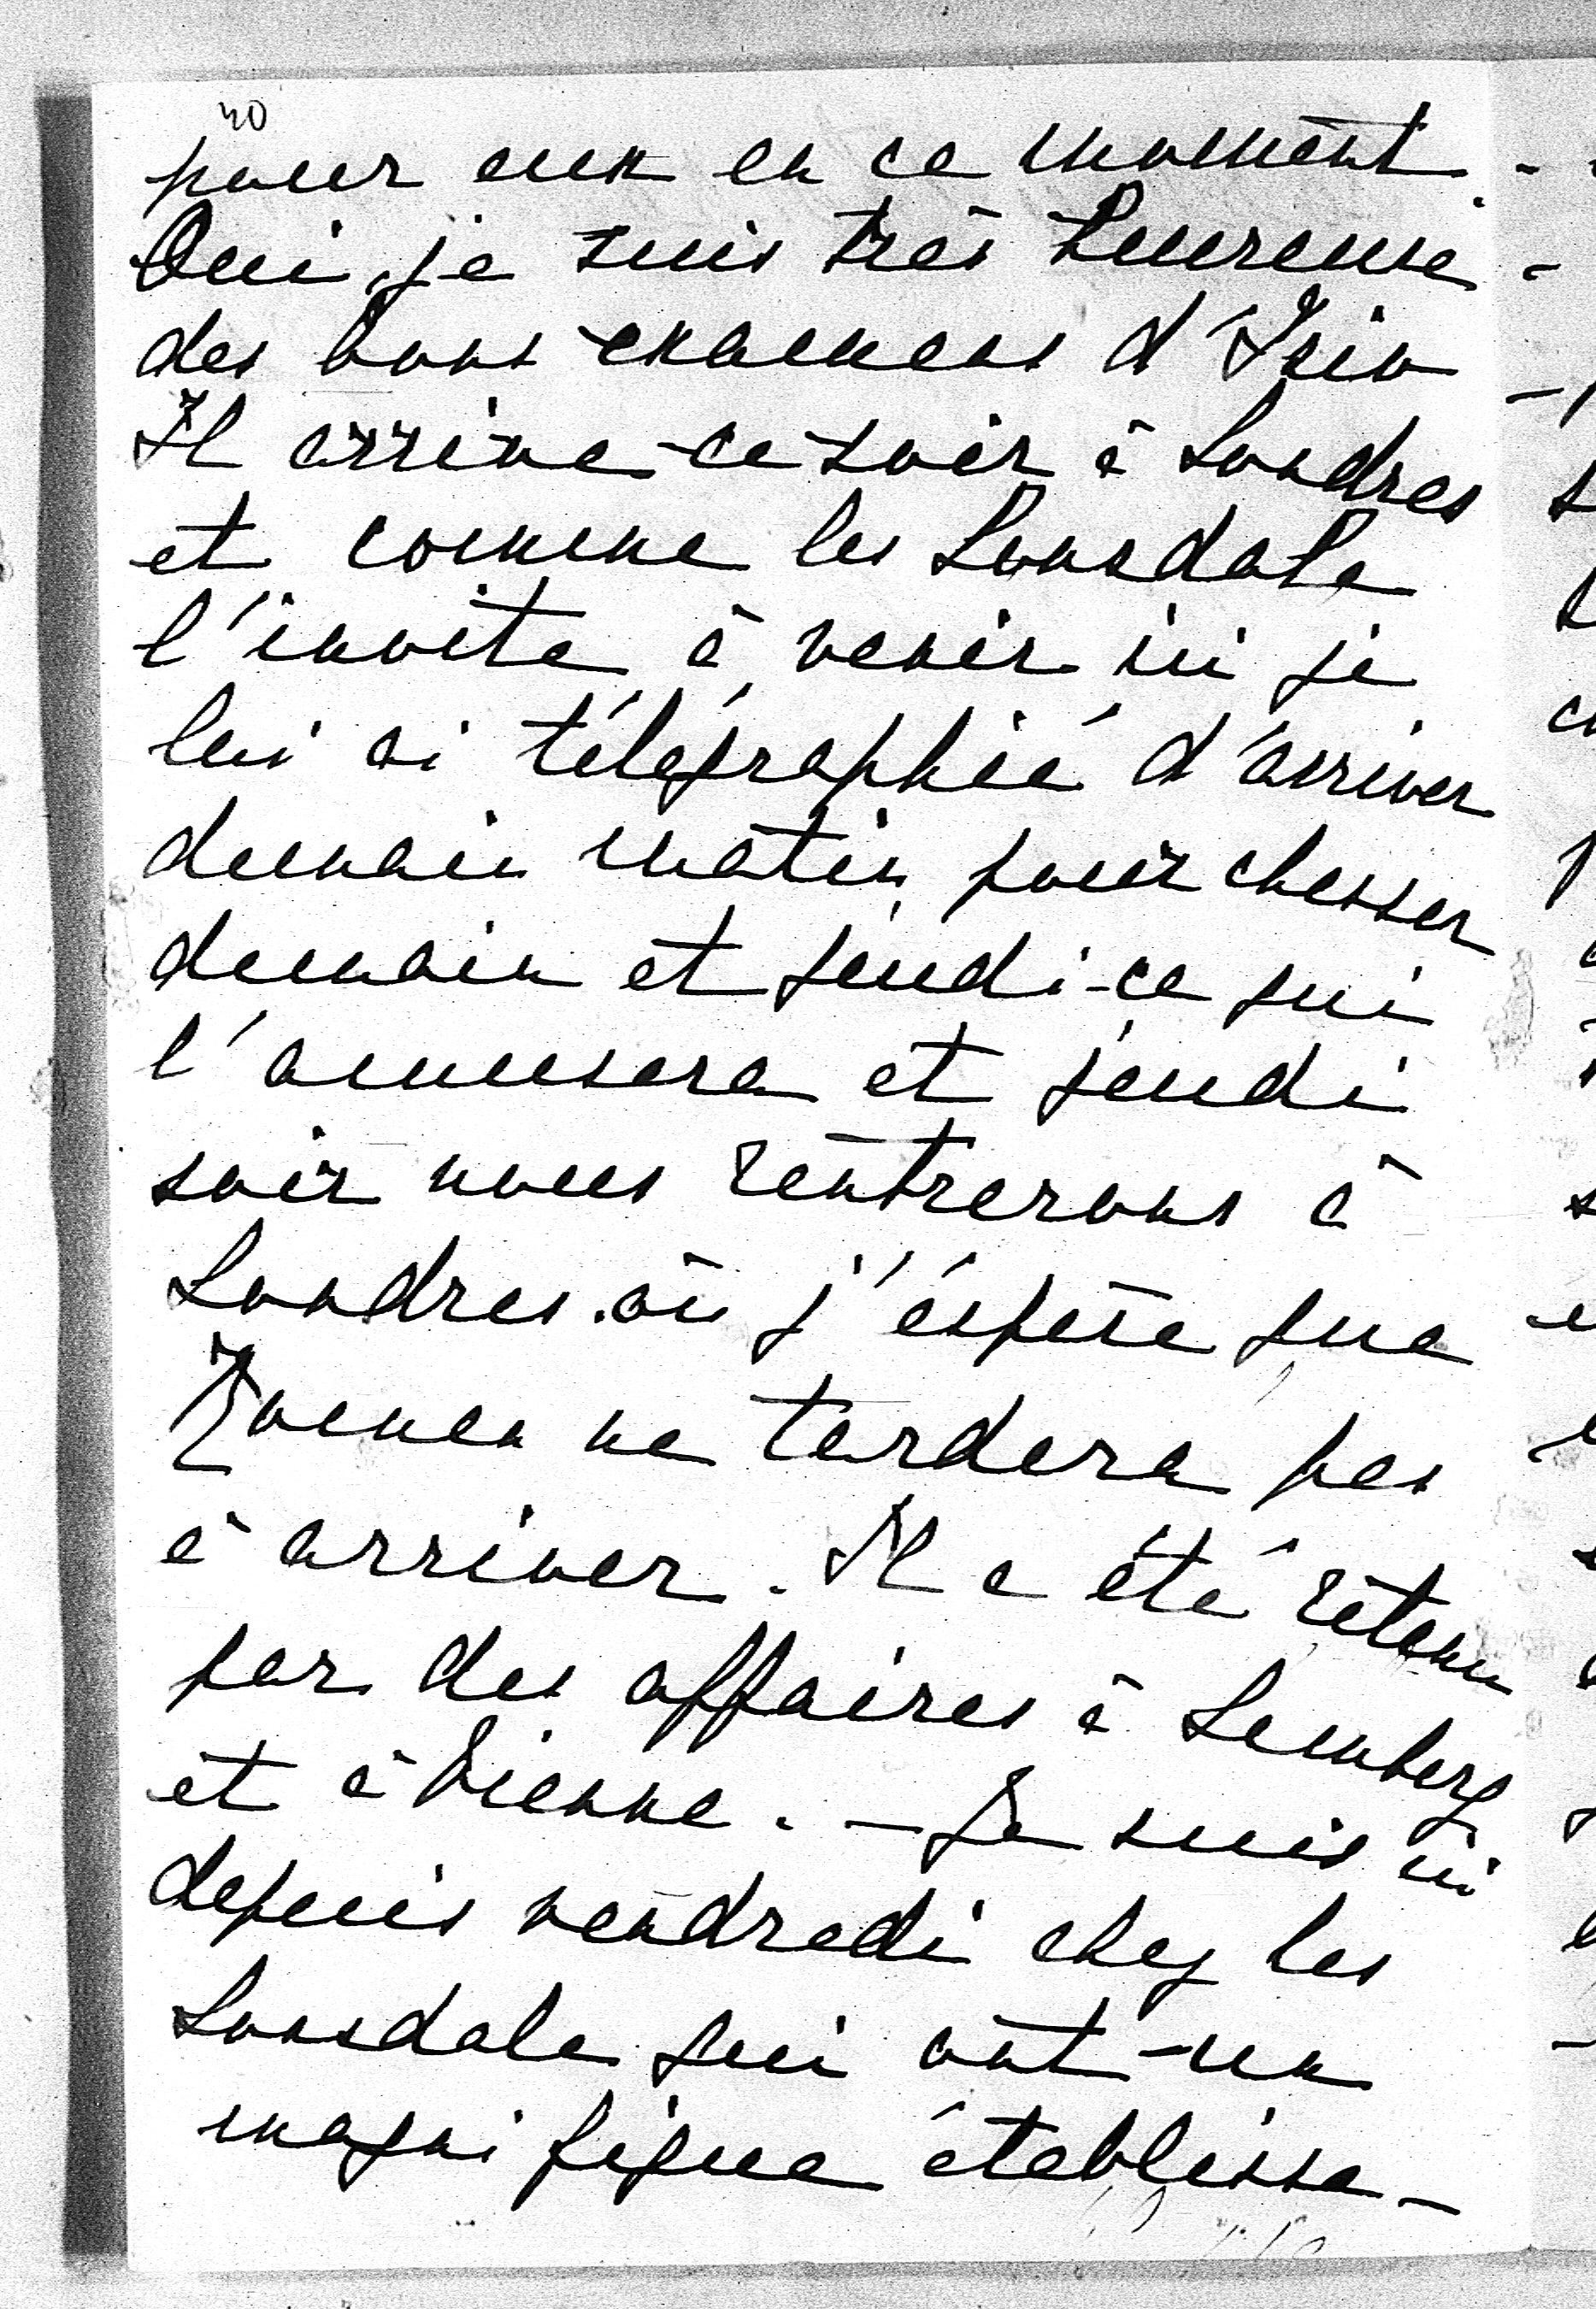 40
pour eux en ce moment. -
Oui, je suis très heureuse
des bons examens d'
Il arrive ce soir à Londres
et comme les Lonsdale
l'invite à venir ici je
lui ai télégraphié d'arriver
demain matin pour chasser
demain et jeudi - ce qui
l'amusera et jeudi
soir nous rentrerons à
Londres où j'éspère que
ne tardera pas
à arriver. Il a été retenu
par des affaires à Lemberg
et à Vienne. - Je suis ici
depuis vendredi chez les
Lonsdale qui ont un
magnifique établisse-